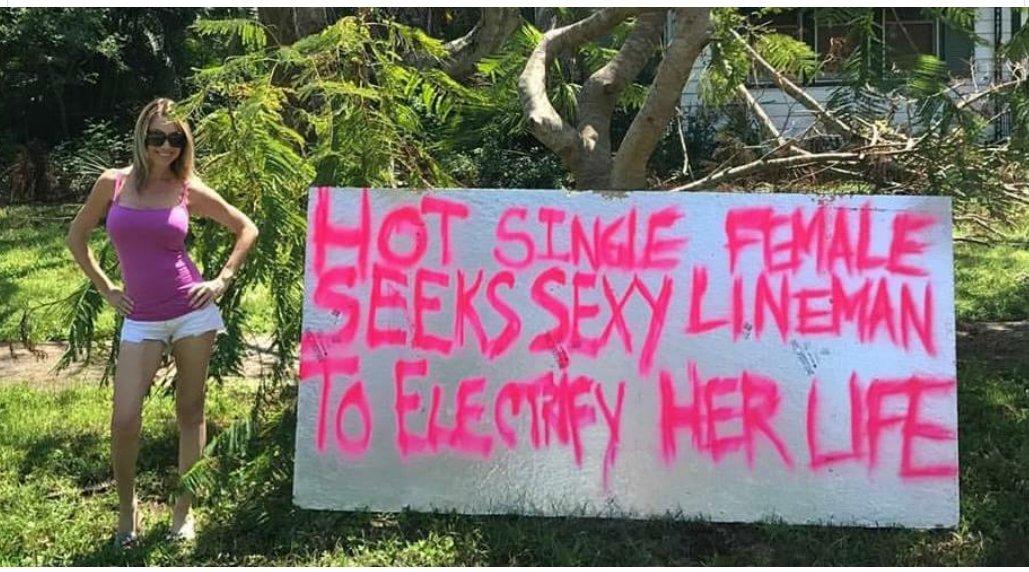 HOT SINGLE FEMALE
SEEKS SEXY LINEMAN
TO ELECTRIFY HER LIFE